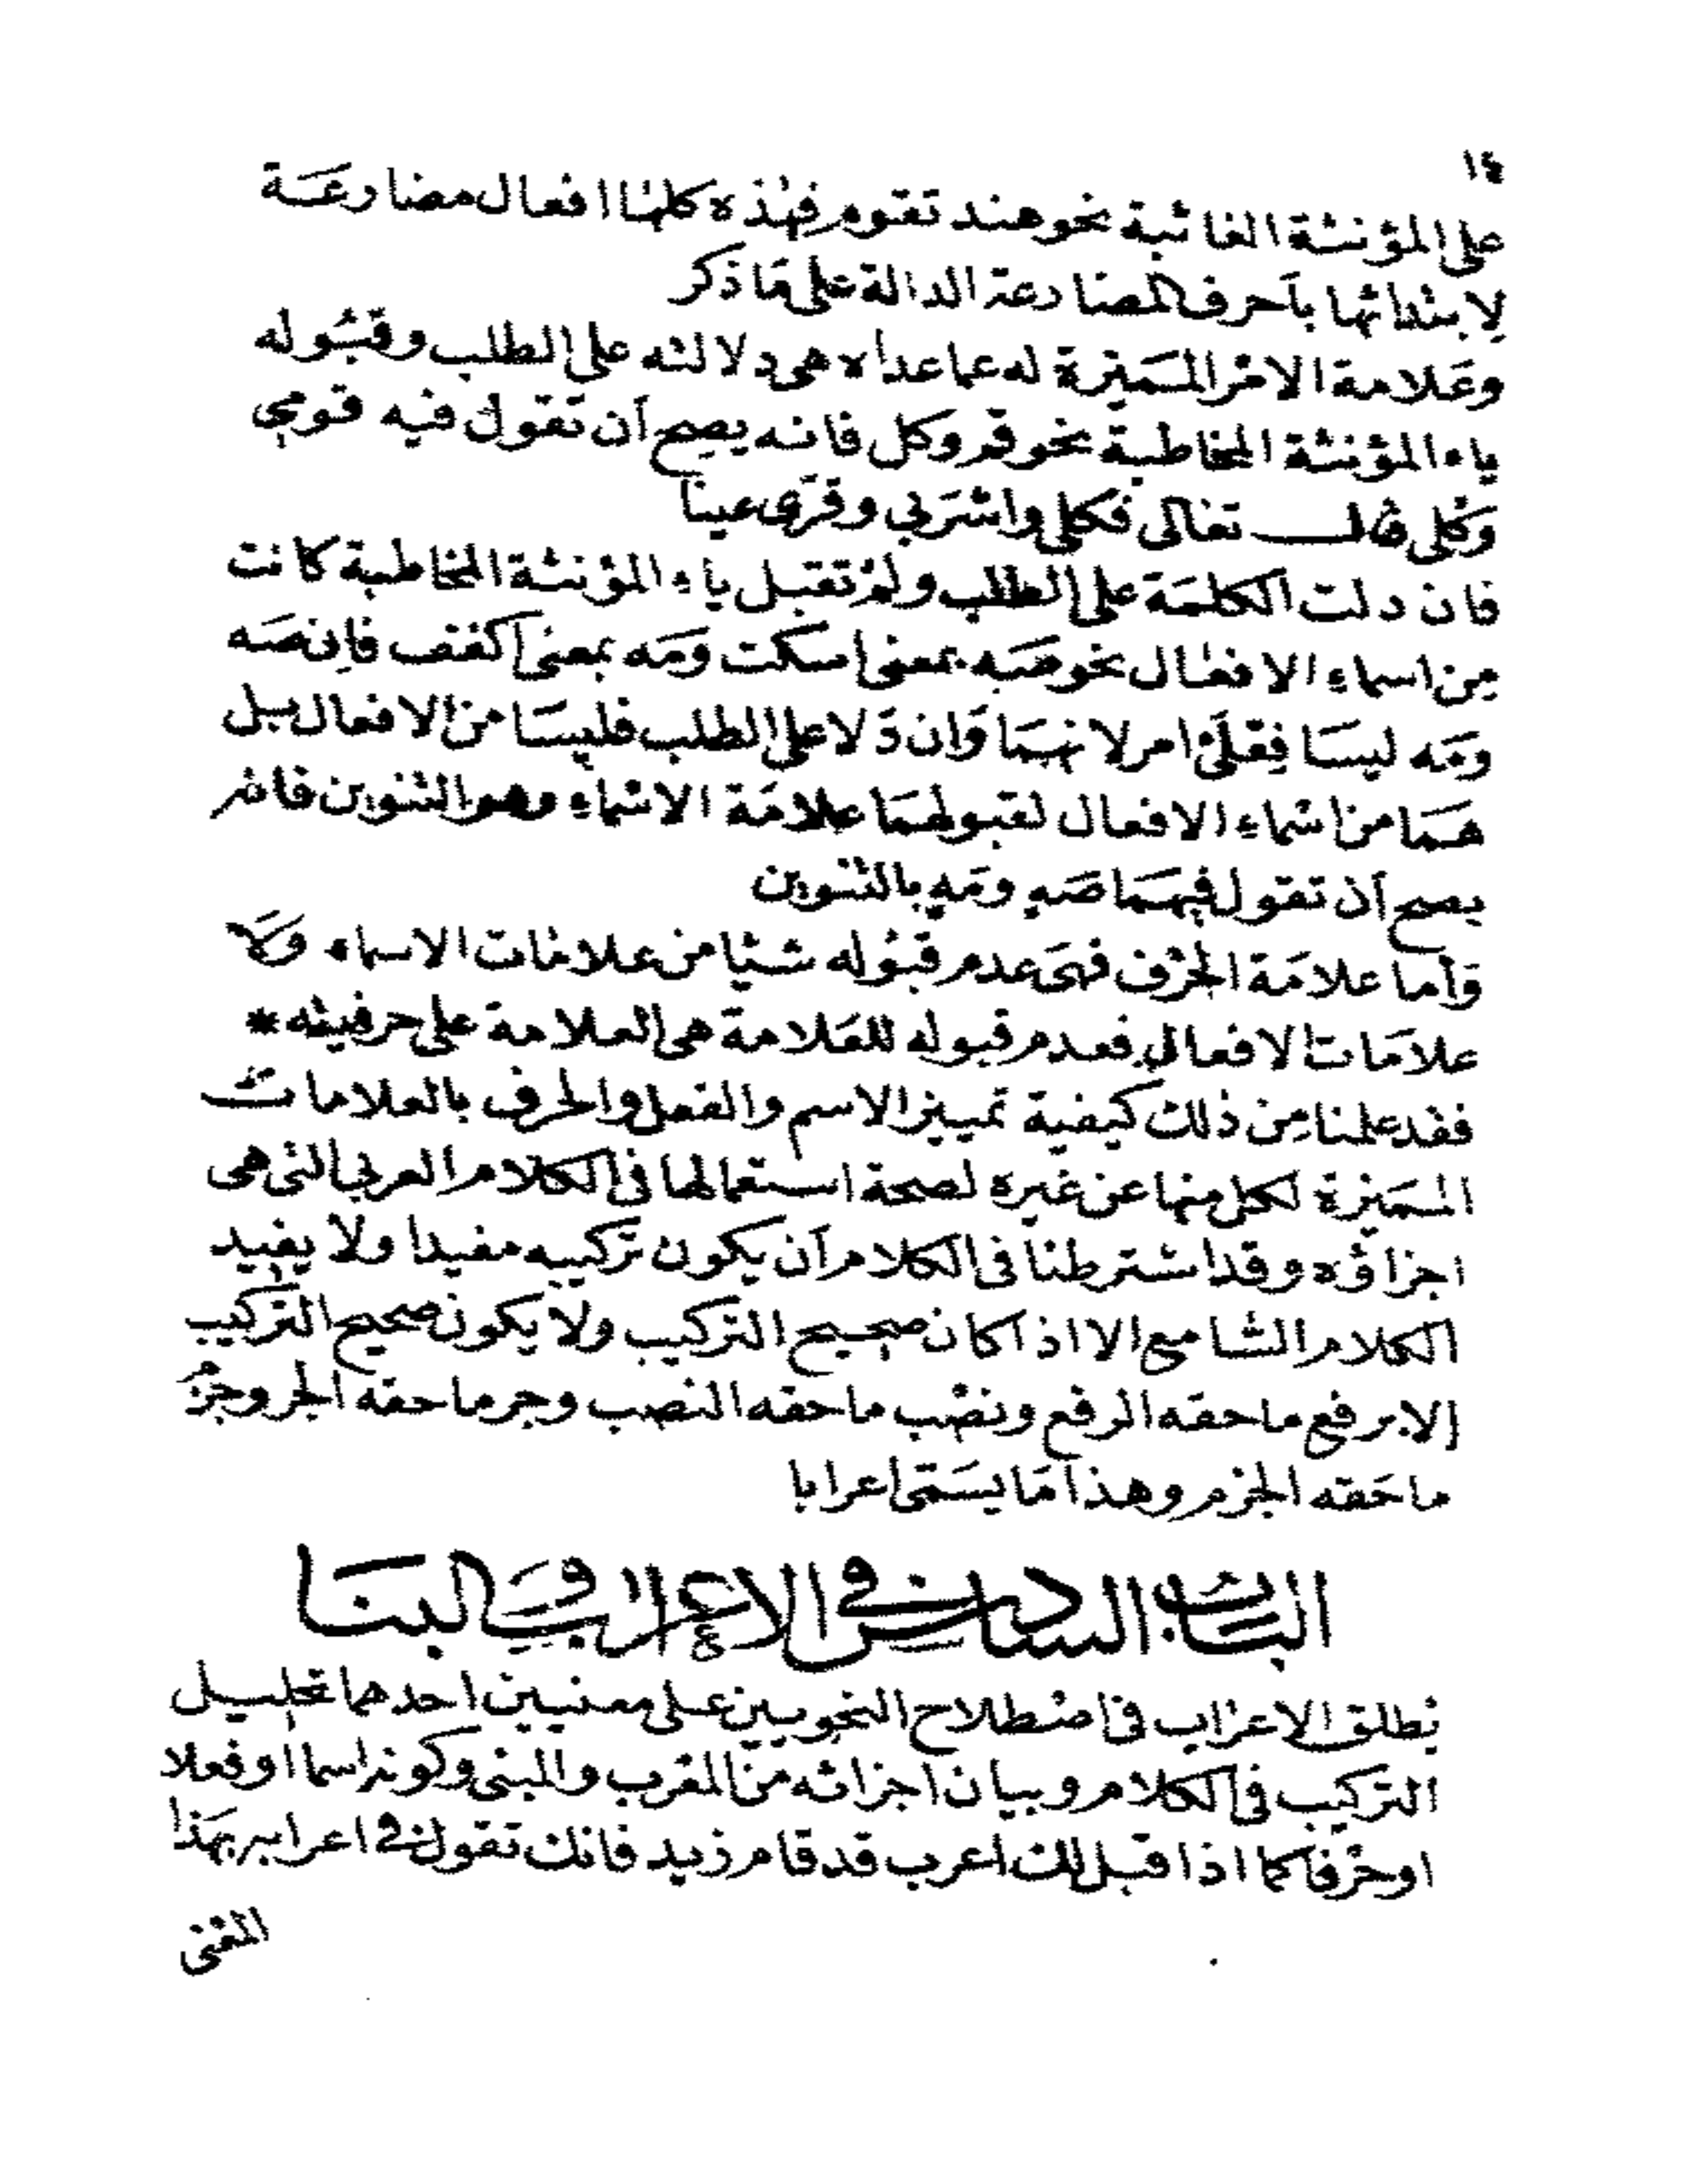 ١٤
على المؤنثة الغائبة نحو هند تقوم فهذه كلها افعال مضارعة
لابتدائها بأحرف المضارعة الدالة على ما ذكر
وعلامة الامر المميزة له عما عداه هى دلالته على الطلب وقبوله
ياء المؤنثة المخاطبة نحو قم وكل فانه يصح أن تقول فيه قومي
وكلى قال تعالى فكلى واشربي وقرى عينا
فان دلت الكلمة على الطلب ولم تقبل ياء المؤنثة المخاطبة كانت
مِن اسماء الافعال نحو صَه بمعنى اسكت ومَه بمعنى اكفف فإن صَه
ومَه ليسَا فِعْلَىْ امر لانهمَا وَان دَلا على الطلب فليسَا من الافعال بل
همَا من اسْماء الافعال لقبولهمَا علامَة الاسْماء وهو التنوين فانه
يصح أن تقول فيهمَا صَهٍ ومَهٍ بالتنوين
وَأما علامَة الحرْف فهى عدم قبُوله شيئا من علامات الاسماء وَلا
علامَات الافعال فعدم قبوله للعَلامة هى العلامة على حرفيته *
فقد علمنا مِن ذلك كيفية تمييز الاسم والفعل والحرف بالعلامات
المميزة لكل منها عن غيره لصحة استعمالها فى الكلام العربي التى هى
اجزاؤه وقد اشترطنا فى الكلام أن يكون تركيبه مفيدا ولا يفيد
الكلام السامع الا اذا كان صحيح التركيب ولا يكون صحيح التركيب
إلا برفع ما حقه الرفع ونصْب ما حقه النصب وجر ما حقه الجر وجزْم
ما حَقه الجزم وهذا مَا يسَمَّى اعرابا
البَاب السادسْ فى الاعراب وَالبنَا
يُطلق الاعْرَاب فى اصْطلاح النحويين على معنيين احدهما تحليل
التركيب فى الكلام وبيان اجزائه من المعْرب والمبنى وكونه اسما او فعلا
او حرْفا كما اذا قيل لك اعرب قد قام زيد فانك تقول فى اعرابه بهَذا
المعْنى